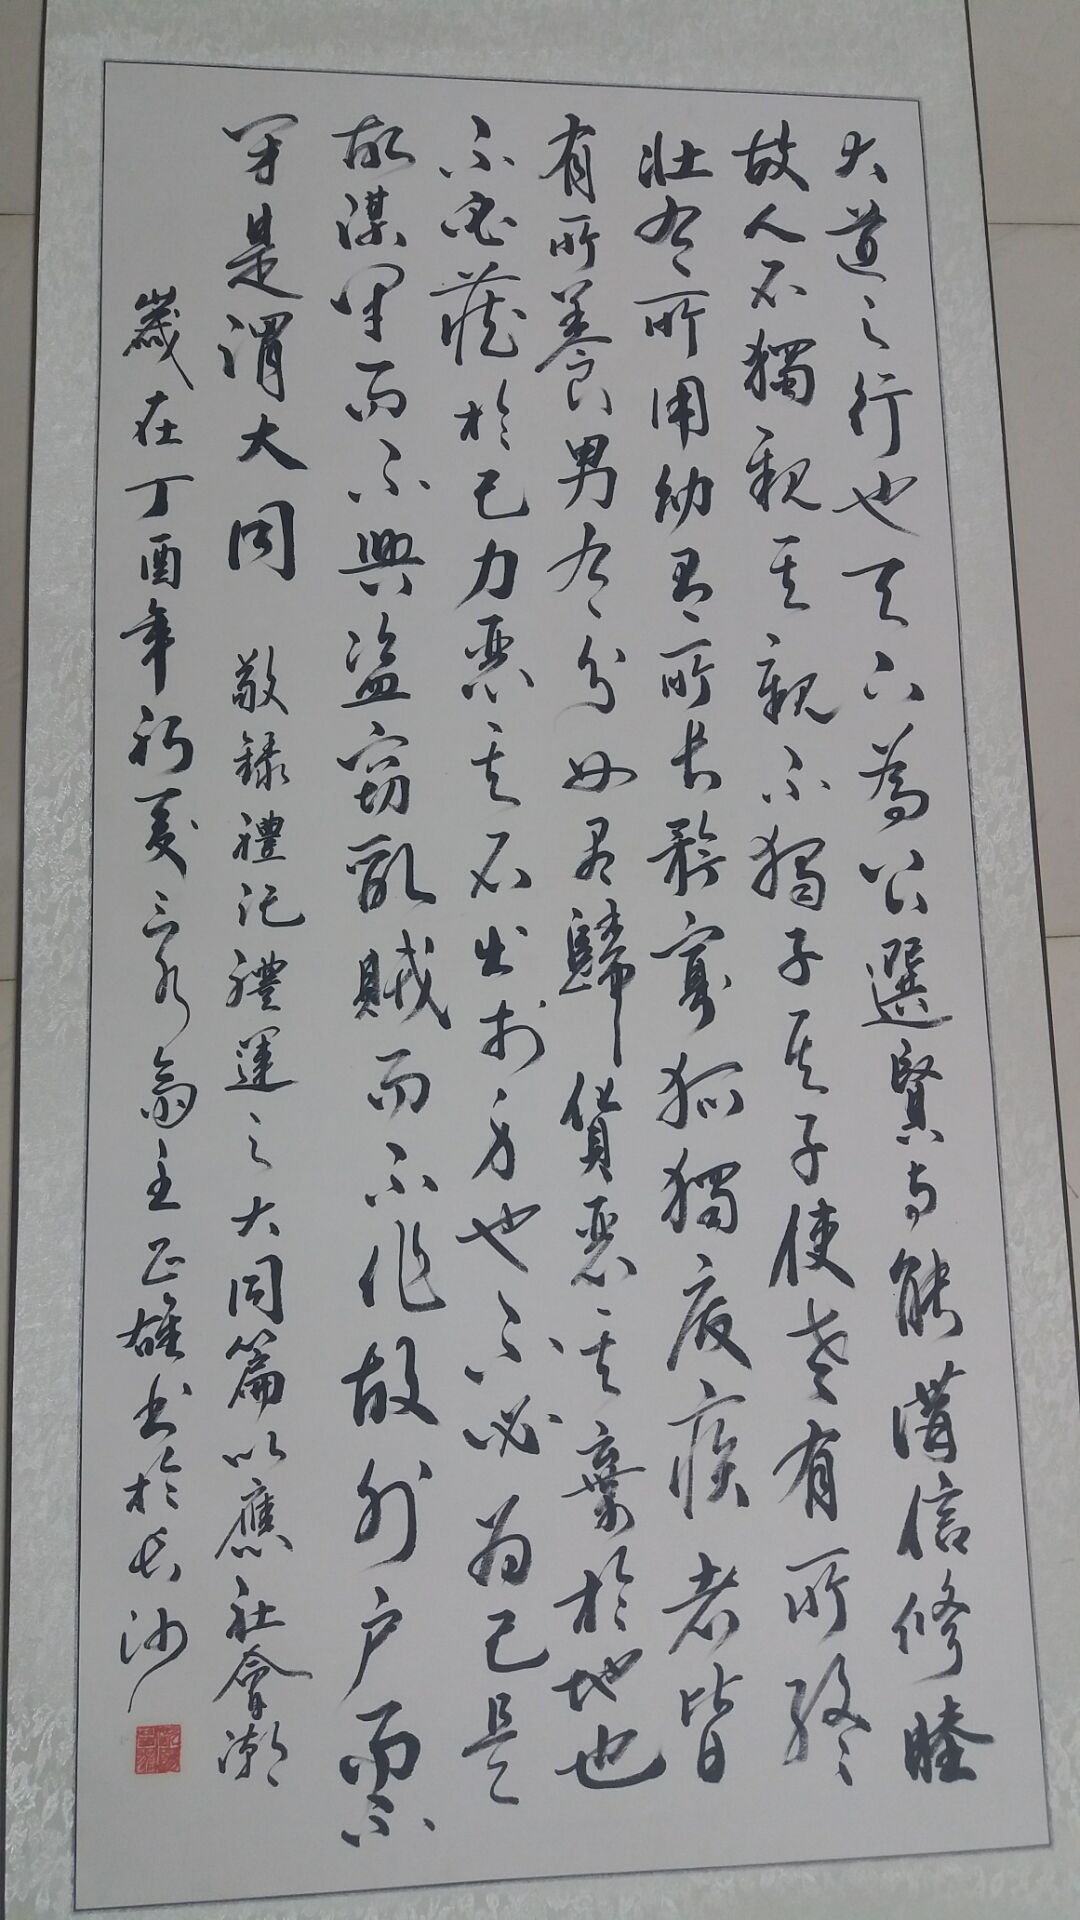 大道之行也天下為公選賢与能講信修睦
故人不獨親其親不獨子其子使老有所終
壯有所用幼有所長矜寡孤獨廢疾者皆
有所養男有分女有歸貨惡其棄於地也
不必藏於己力惡其不出於身也不必为己是
故謀閉而不興盜竊亂賊而不作故外户而不
閉是謂大同 敬録禮記禮運之大同篇以應社會潮
歲在丁酉年初夏三水斋主正雄书於长沙